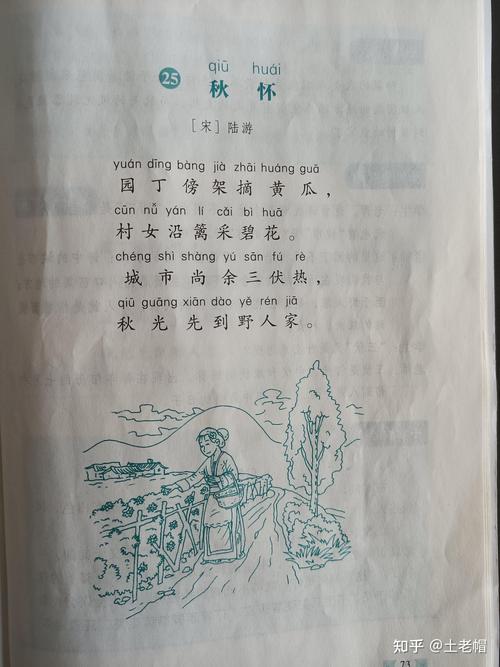 qiū huái
25 秋怀
[宋] 陆游
yuán dīng bàng jià zhāi huáng guā
园丁傍架摘黄瓜，
cūn nǚ yán lí cǎi bì huā
村女沿篱采碧花。
chéng shì shàng yú sān fú rè
城市尚余三伏热，
qiū guāng xiān dào yě rén jiā
秋光先到野人家。
73
知乎 @土老帽